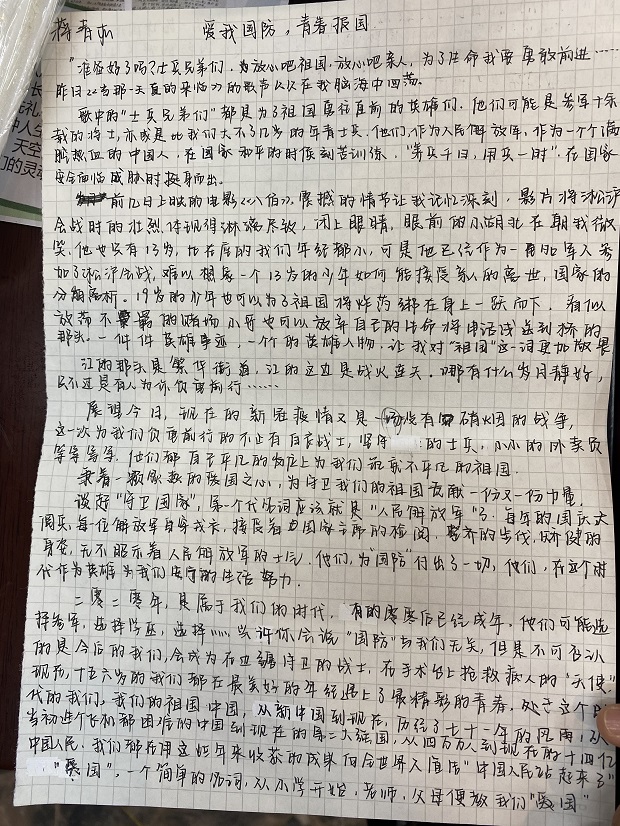 蒋青松 爱我国防，青春报国
“准备好了吗？士兵兄弟们，为放心吧祖国，放心吧亲人，为了生命我要勇敢前进……
昨日《当那一天真的来临》的歌声久久在我脑海中回荡。
歌中的“士兵兄弟们”都是为了祖国勇往直前的英雄们。他们可能是参军十余
载的将士，亦或是比我们大不了几岁的年青士兵。他们，作为人民解放军，作为一个个满
腔热血的中国人，在国家和平的时候刻苦训练，“养兵千日，用兵一时”，在国家
安全面临威胁时挺身而出。
前几日上映的电影《八佰》，震撼的情节让我记忆深刻，影片将淞沪
会战时的壮烈体现得淋漓尽致，闭上眼睛，眼前的小湖北在朝我微
笑。他也只有13岁，比在座的我们年纪都小，可是他已经作为一名加军人参
加了淞沪会战，难以想象一个13岁的少年如何能接受亲人的离世，国家的
分崩离析。19岁的少年也可以为了祖国将炸药绑在身上一跃而下。看似
放荡不羁的赌场小哥也可以放弃自己的生命将电话线送到桥的
那头。一件件英雄事迹，一个个的英雄人物，让我对“祖国”这一词更加敬畏
江的那头是繁华街道，江的这边是战火连天。哪有什么岁月静好，
只不过是有人为你负重前行……
展望今日，现在的新冠疫情又是一场没有硝烟的战争，
这一次为我们负重前行的不止有白衣战士，坚守的士兵，小小的外卖员
等等等等。他们都在自己平凡的岗位上为我们筑就不平凡的祖国
秉着一颗颗赤的爱国之心，为守卫我们的祖国贡献一份又一份力量。
谈起“守卫国家”，第一个代名词应该就是“人民解放军”了。每年的国庆大
阅兵，每一位解放军身穿戎衣，接受着国家主席的检阅，整齐的步伐，矫健的
身姿，无不昭示着人民解放军的士气。他们，为“国防”付出了一切，他们，在这个时
代作为英雄为我们安宁的生活努力
二零二零年，是属于我们的时代，有的零零后已经成年，他们可能选
择参军，选择学医，选择……也许你会说“国防”与我们无关，但是不可否认
的是今后的我们，会成为在边疆守卫的战士，在手术台上抢救病人的“天使”
现在，十五六岁的我们都在最美好的年纪遇上了最精彩的青春。处于这个时
代的我们，我们的祖国中国，从新中国到现在，历经了七十一年的风雨，从
当初连个飞机都困难的中国到现在的第二大强国，从四万万人到现在的十四亿
中国人民，我们都在用这些年来收获的成果向全世界人宣告“中国人民站起来了”
“爱国”，一个简单的名词，从小学开始，老师，父母便教我们“爱国”